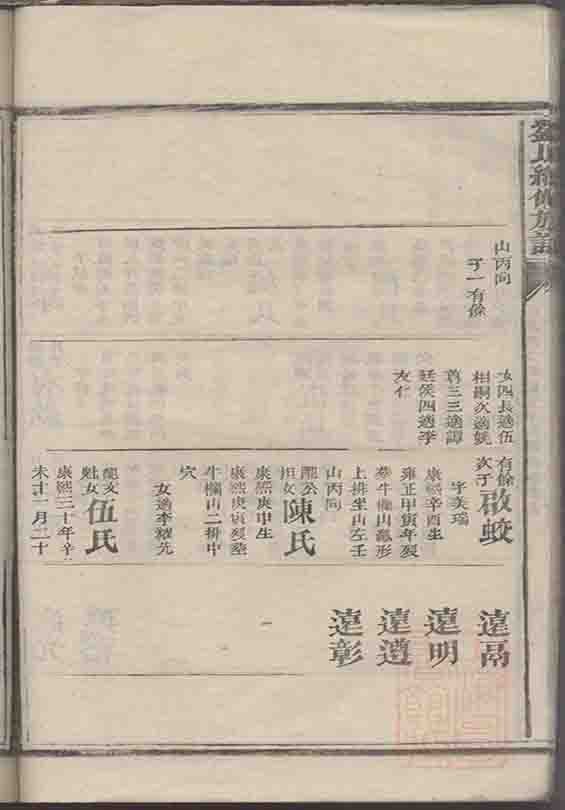 氏續修族譜
山丙向
子一有餘
女四長適伍
相嗣次適
三三適譚
廷侯四適李
友仁
有餘
次子
啟蛟
字美瑞
康熙辛酉生
雍正甲寅年歿
葬牛欄山形
上排坐山左壬
山丙向
龍公
担女
陳氏
康熙庚申生
康熙庚寅歿葬
牛欄山二排中
穴
女適李耀先
龍文
魁女
伍氏
康熙三十年辛
未十一月二十
遠
遠明
遠遵
遠彰